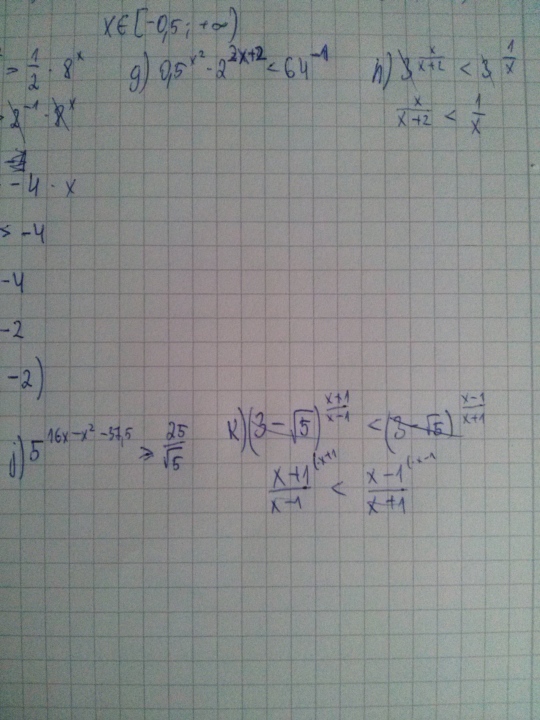 x∈[-0,5; +∞)
> 1/2 · 8^x
g) 0,5^(x²) · 2^(2x+2) < 64^(-1)
h) 3^(x/(x+2)) < 3^(1/x)
2^(-1) · 8^x
x/(x+2) < 1/x
-4 · x
-4
-4
-2
-2)
j) 5^(16x-x²-37,5) ≥ 25/√5
k) (3-√5)^((x+1)/(x-1)) < (3-√5)^((x-1)/(x+1))
(x+1)/(x-1) (·x+1 < (x-1)/(x+1) (·x-1